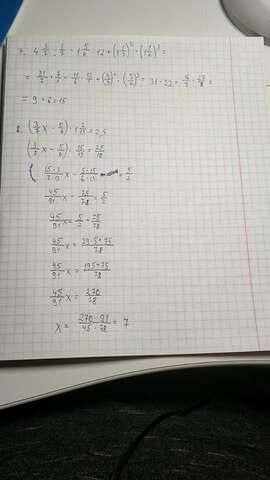 7. 4 3/7 : 1/7 - 1 5/6 · 12 + (1 1/3)² · (1 1/2)³ =
= 31/7 · 7/1 - 11/6 · 12/1 + (4/3)² · (3/2)³ = 31 - 22 + 16/9 · 27/8 =
= 9 + 6 = 15
8. (3/7 x - 5/6) · 1 2/13 = 2,5
(3/7 x - 5/6) · 15/13 = 25/10
( 15·3/7·13 x - 5·15/6·13 = 5/2
45/91 x - 75/78 = 5/2
45/91 x = 5/2 + 75/78
45/91 x = 39·5+75/78
45/91 x = 195+75/78
45/91 x = 270/78
x = 270·91/45·78 = 7